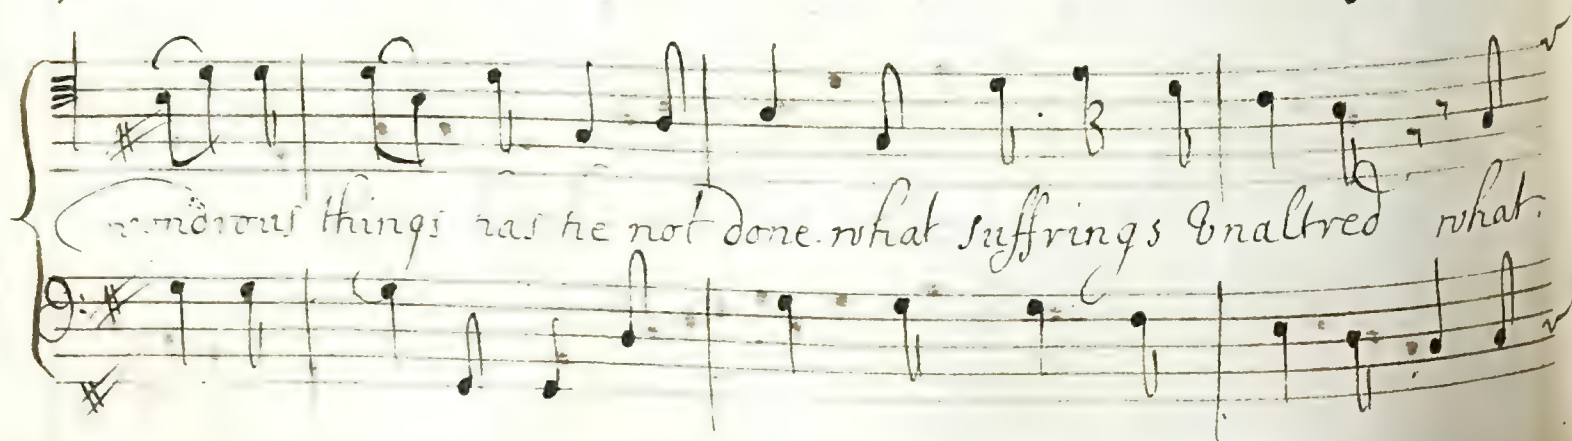 wondrous things has he not done. what suffrings Unaltred what